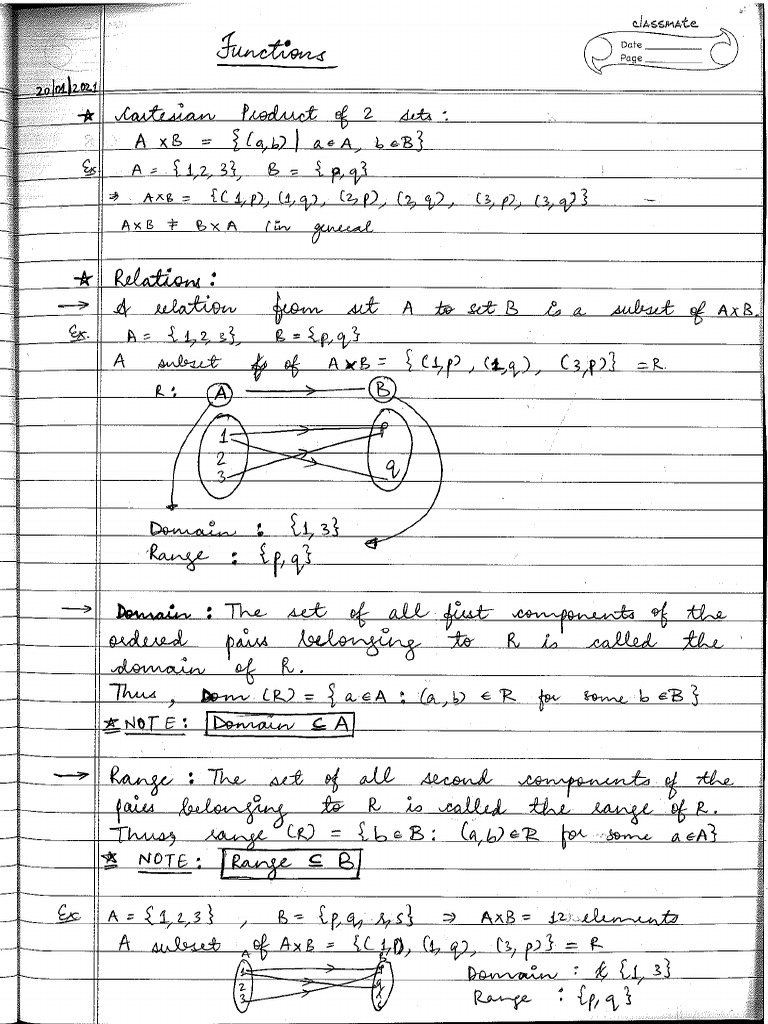 classmate
Date
Page
Functions
20/01/2021
★ Cartesian Product of 2 sets:
A × B = {(a,b) | a ∈ A, b ∈ B}
Ex A = {1,2,3}, B = {p,q}
⇒ A×B = {(1,p), (1,q), (2,p), (2,q), (3,p), (3,q)}
A×B ≠ B×A (in general
★ Relations:
→ A relation from set A to set B is a subset of A×B.
Ex. A = {1,2,3}, B = {p,q}
A subset of A×B = {(1,p), (1,q), (3,p)} = R.
R: A → B
1 p
2
3 q
Domain : {1,3}
Range : {p,q}
→ Domain : The set of all first components of the
ordered pairs belonging to R is called the
domain of R.
Thus, Dom (R) = {a∈A : (a,b) ∈ R for some b ∈ B}
★ NOTE: Domain ⊆ A
→ Range : The set of all second components of the
pairs belonging to R is called the range of R.
Thus, range (R) = {b∈B: (a,b)∈R for some a∈A}
★ NOTE: Range ⊆ B
Ex A = {1,2,3}, B = {p,q,r,s} ⇒ A×B = 12 elements
A subset of A×B = {(1,p), (1,q), (3,p)} = R
A B
1 p
2 q
3 s
Domain : {1,3}
Range : {p,q}